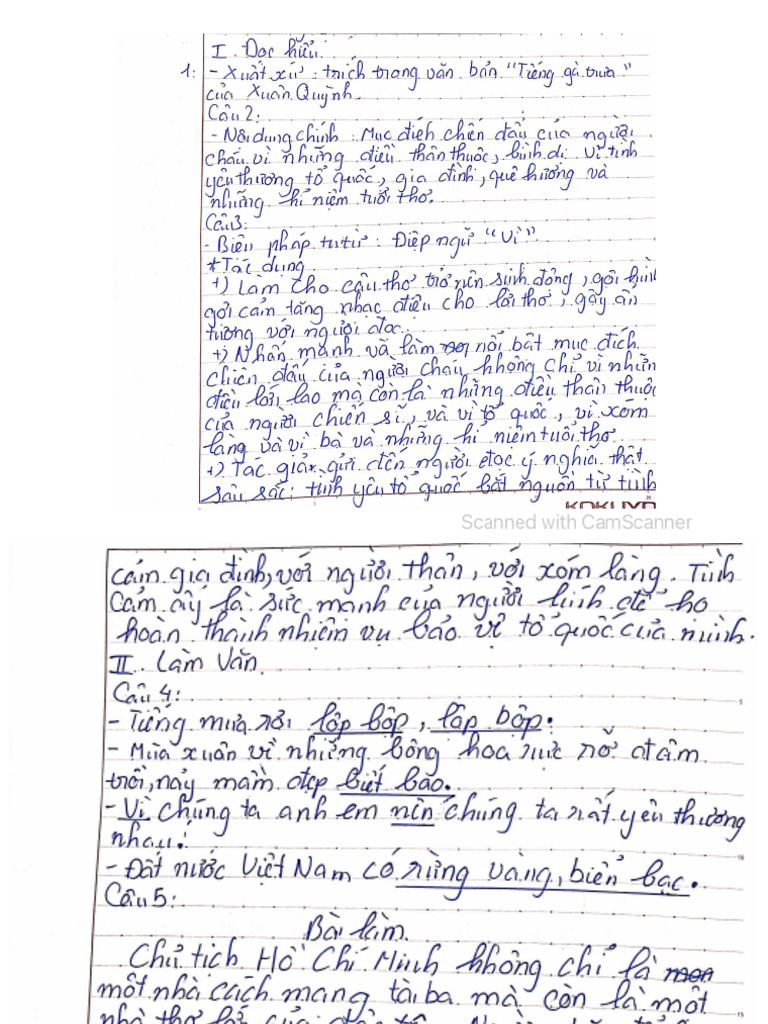 I. Đọc hiểu.
1: - Xuất xứ: trích trong văn bản "Tiếng gà trưa"
của Xuân Quỳnh.
Câu 2:
- Nội dung chính: Mục đích chiến đấu của người
cháu vì những điều thân thuộc, bình dị. Vì tình
yêu thương tổ quốc, gia đình, quê hương và
những kỉ niệm tuổi thơ.
Câu 3:
- Biện pháp tu từ: Điệp ngữ "Vì"
* Tác dụng
+) Làm cho câu thơ trở nên sinh động, gợi hình
gợi cảm tăng nhạc điệu cho lời thơ, gây ấn
tượng với người đọc.
+) Nhấn mạnh và làm nổi bật mục đích
chiến đấu của người cháu không chỉ vì những
điều lớn lao mà còn là những điều thân thuộc
của người chiến sĩ, và vì tổ quốc, vì xóm
làng và vì bà và những kỉ niệm tuổi thơ
+) Tác giả gửi đến người đọc ý nghĩa thật
sâu sắc: tình yêu tổ quốc bắt nguồn từ tình
KOKUYO
Scanned with CamScanner
cảm gia đình, với người thân, với xóm làng. Tình
cảm ấy là sức mạnh của người lính để họ
hoàn thành nhiệm vụ bảo vệ tổ quốc của mình.
II. Làm Văn
Câu 4:
- Tiếng mưa rơi lộp bộp, lộp bộp.
- Mùa xuân về những bông hoa rực rỡ
trời, nảy mầm đẹp biết bao.
- Vì chúng ta anh em nên chúng ta rất yêu thương
nhau.
- Đất nước Việt Nam có rừng vàng, biển bạc.
Câu 5:
Bài làm
Chủ tịch Hồ Chí Minh không chỉ là
một nhà cách mạng tài ba mà còn là một